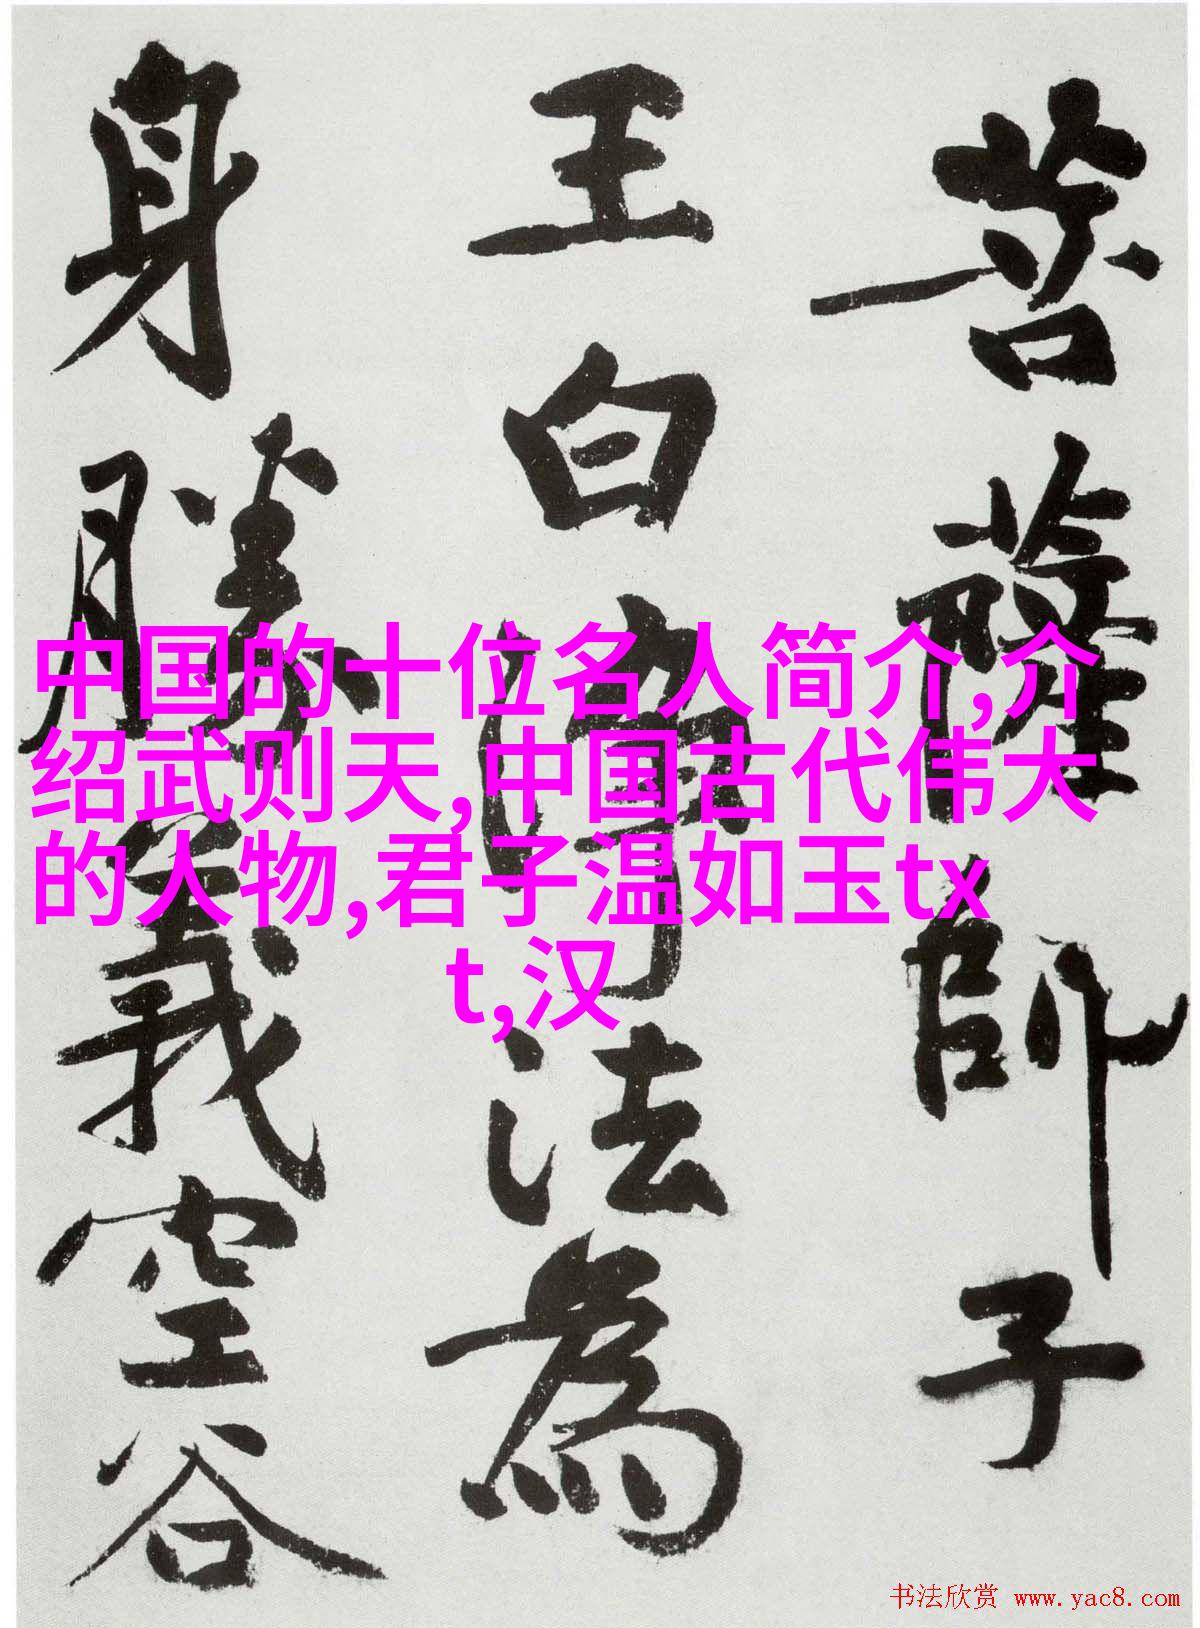 菩薩師子
王白淨法為
身勝義空谷
中国的十位名人简介,介
绍武则天,中国古代伟大
的人物,君子温如玉tx
t,汉
书法欣赏 www.yac8.com